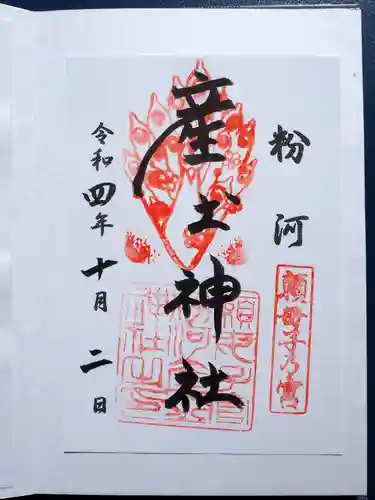 粉河
産土神社
令和四年十月二日
頼母子乃宮